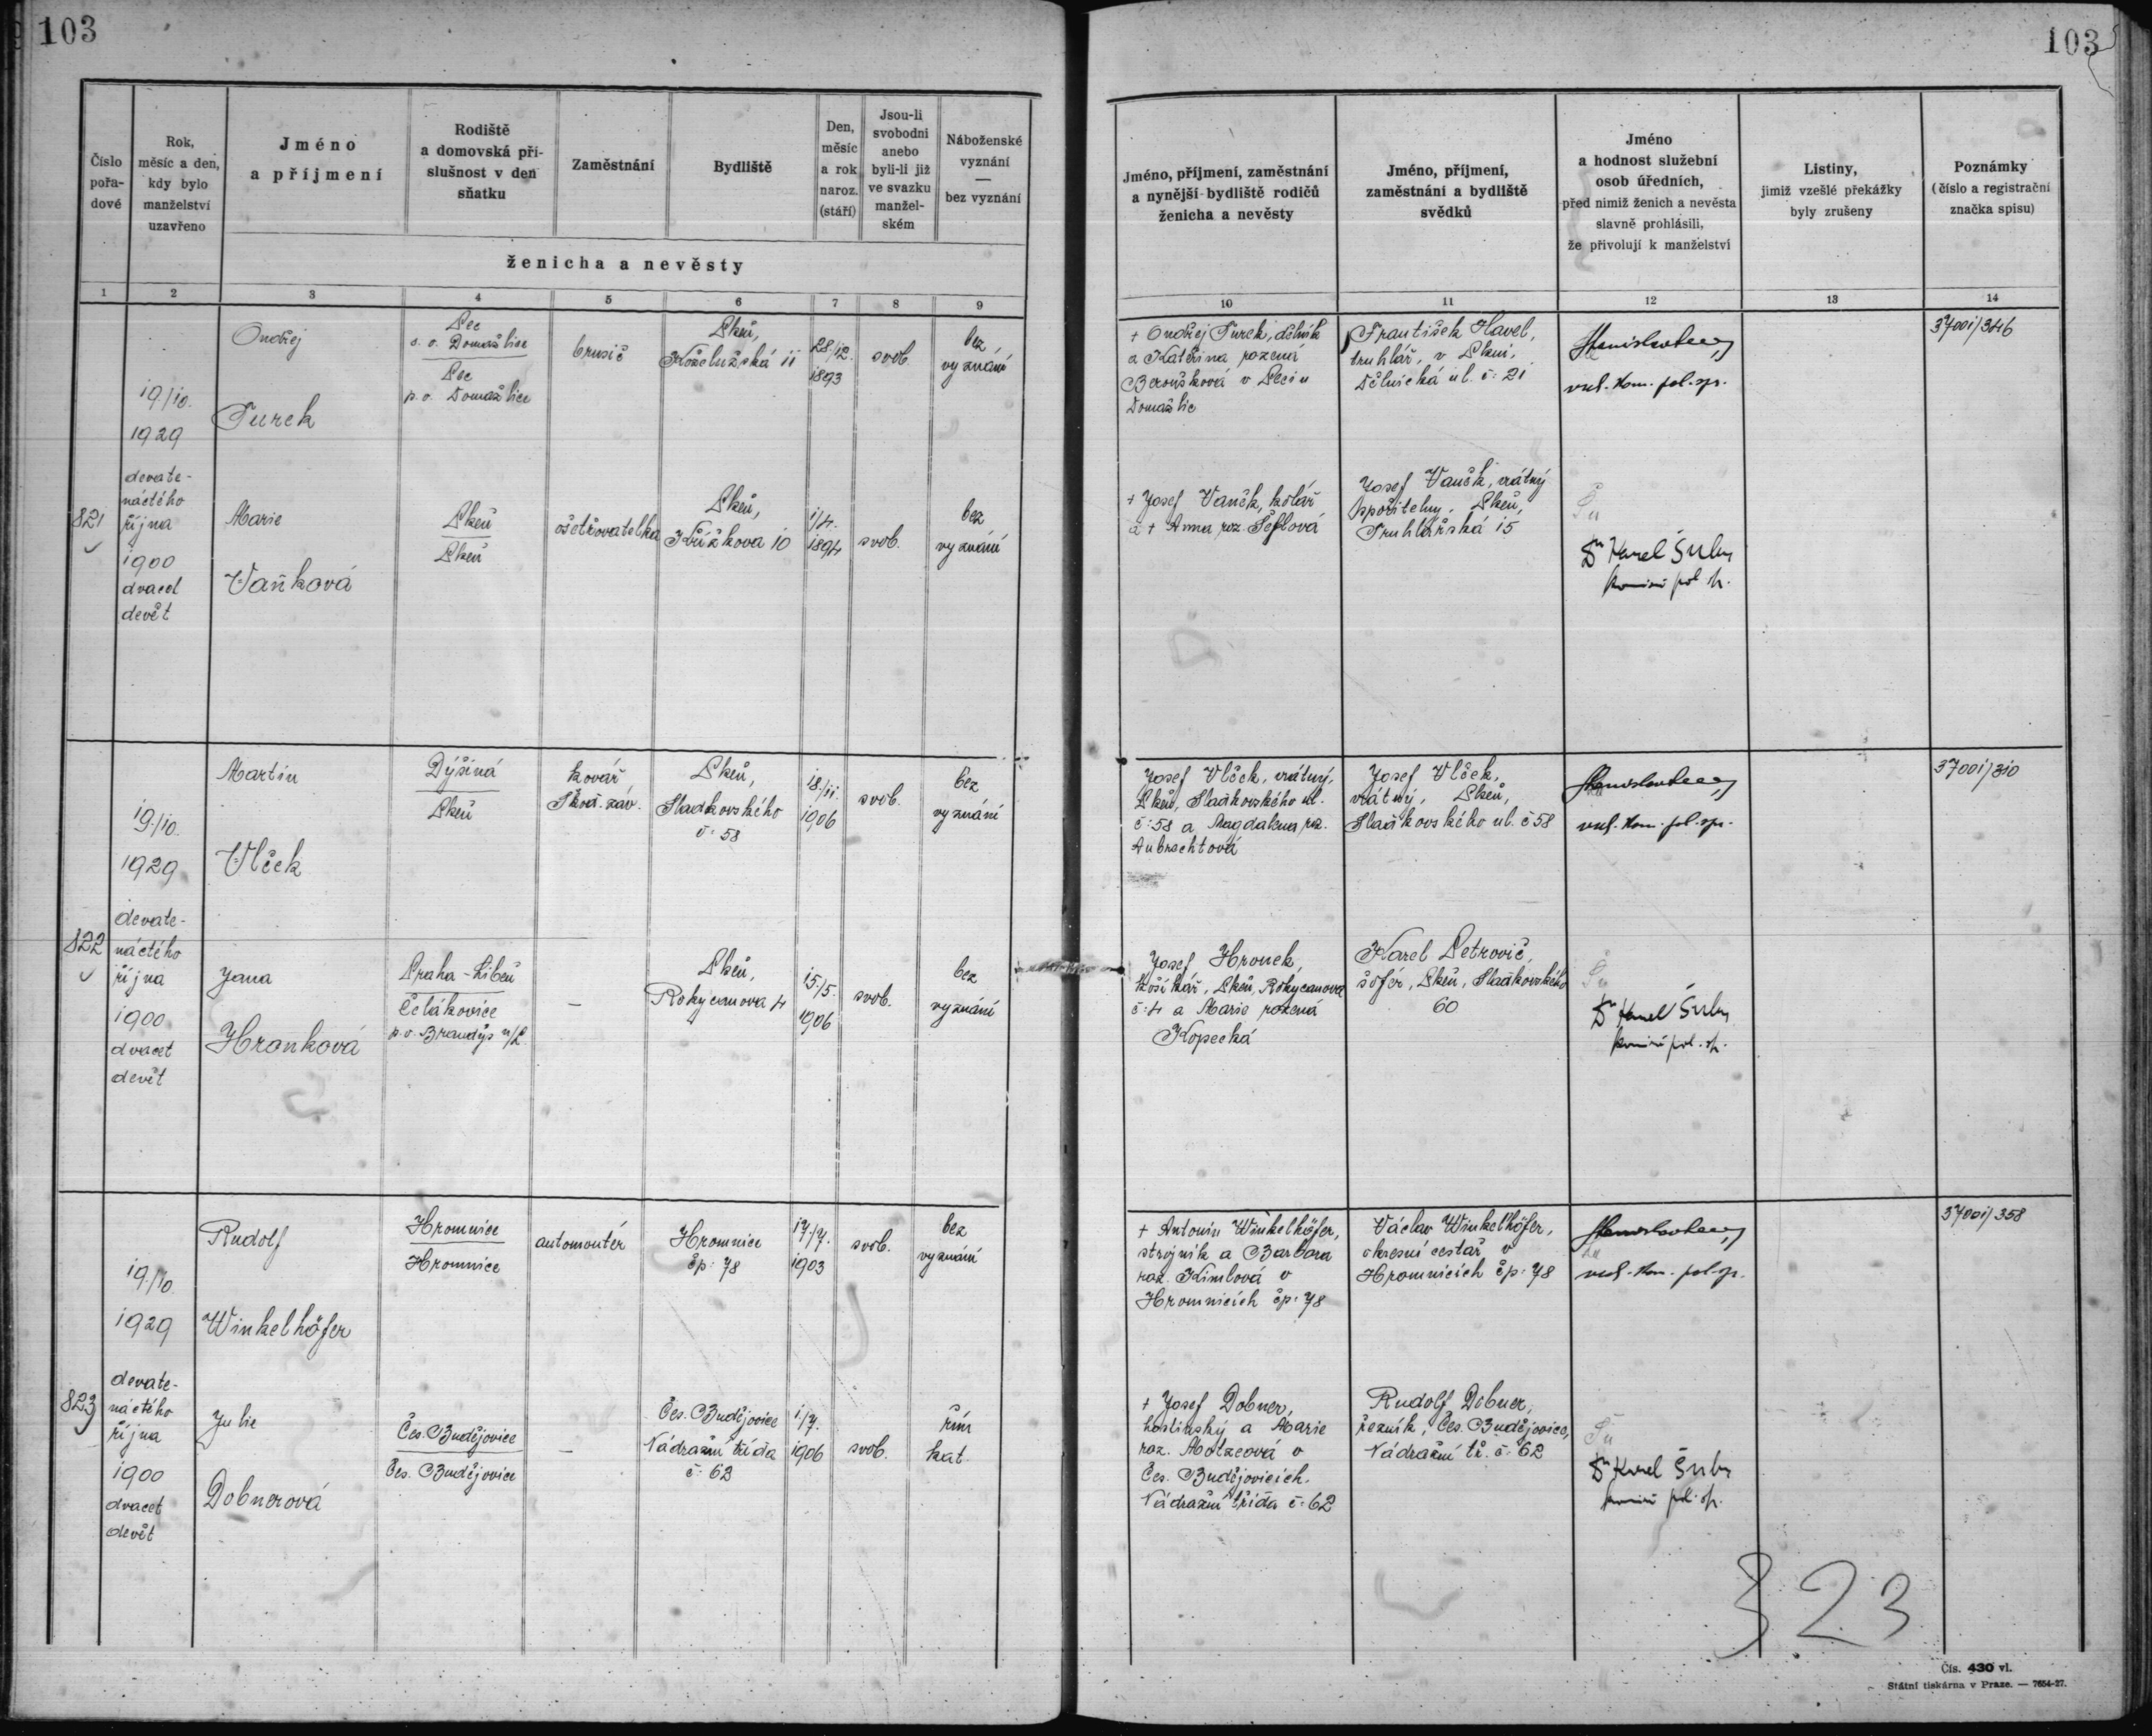 103
103
Číslo
pořa-
dové
Rok,
měsíc a den,
kdy bylo
manželství
uzavřeno
Jméno
a příjmení
Rodiště
a domovská pří-
slušnost v den
sňatku
Zaměstnání
Bydliště
Den,
měsíc
a rok
naroz.
(stáří)
Jsou-li
svobodni
anebo
byli-li již
ve svazku
manžel-
ském
Náboženské
vyznání
—
bez vyznání
ženicha a nevěsty
Jméno, příjmení, zaměstnání
a nynější bydliště rodičů
ženicha a nevěsty
Jméno, příjmení,
zaměstnání a bydliště
svědků
Jméno
a hodnost služební
osob úředních,
před nimiž ženich a nevěsta
slavně prohlásili,
že přivolují k manželství
Listiny,
jimiž vzešlé překážky
byly zrušeny
Poznámky
(číslo a registrační
značka spisu)
1 2 3 4 5 6 7 8 9 10 11 12 13 14
821
19./10.
1929
devate-
náctého
října
1900
dvacet
devět
Ondřej
Turek
Pec
s. o. Domažlice
Pec
p. o. Domažlice
brusič
Plzeň,
Koželužská 11
28/12.
1893
svob.
bez
vyznání
+ Ondřej Turek, dělník
a Kateřina rozená
Beroušková v Peci u
Domažlic
František Havel,
truhlář, v Plzni,
Dělnická ul. č: 21
vrch. kom. pol. spr.
3700i/346
Marie
Vaňková
Plzeň
Plzeň
ošetřovatelka
Plzeň,
Křížkova 10
1/4.
1894
svob.
bez
vyznání
+ Josef Vaněk, kolář
a + Anna roz. Šeflová
Josef Vaněk, vrátný
spořitelny, Plzeň,
Truhlářská 15
Dr Karel Šuba
komisař pol. sp.
822
19./10.
1929
devate-
náctého
října
1900
dvacet
devět
Martin
Vlček
Dýšiná
Plzeň
kovář
Škod. záv.
Plzeň,
Sladkovského
č: 58
18./11.
1906
svob.
bez
vyznání
Josef Vlček, vrátný,
Plzeň, Sladkovského ul.
č: 58 a Magdalena roz.
Aubrechtová
Josef Vlček,
vrátný, Plzeň,
Sladkovského ul. č 58
vrch. kom. pol. spr.
3700i/310
Jana
Hronková
Praha - Libeň
Čelákovice
p. o. Brandýs n/L
—
Plzeň,
Rokycanova 4
15./5.
1906
svob.
bez
vyznání
Josef Hronek,
košíkář, Plzeň, Rokycanova
č: 4 a Marie rozená
Kopecká
Karel Petrovič,
šofér, Plzeň, Sladkovského
60
Dr Karel Šuba
komisař pol. sp.
823
19./10.
1929
devate-
náctého
října
1900
dvacet
devět
Rudolf
Winkelhöfer
Hromnice
Hromnice
automontér
Hromnice
čp: 78
17./7.
1903
svob.
bez
vyznání
+ Antonín Winkelhöfer,
strojník a Barbora
roz. Kimlová v
Hromnicích čp: 78
Václav Winkelhöfer,
okresní cestář v
Hromnicích čp: 78
vrch. kom. pol. sp.
3700i/358
Julie
Dobnerová
Čes. Budějovice
Čes. Budějovice
—
Čes. Budějovice
Nádražní třída
č: 62
1./7.
1906
svob.
řím
kat.
+ Josef Dobner,
hostinský a Marie
roz. Motzeová v
Čes. Budějovicích.
Nádražní třída č: 62
Rudolf Dobner,
řezník, Čes. Budějovice,
Nádražní tř. č: 62
Dr Karel Šuba
komisař pol. sp.
323
Čís. 430 vl.
Státní tiskárna v Praze. — 7654-27.